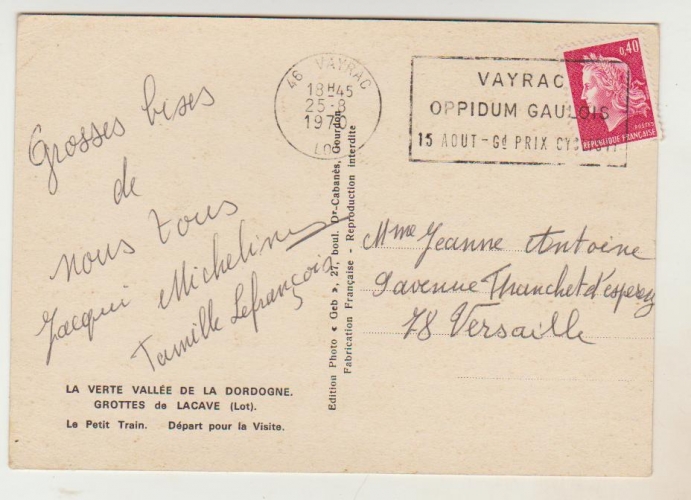 46 VAYRAC
18H45
25-8
197
LOT
VAYRAC
OPPIDUM GAULOIS
15 AOUT - Gd PRIX CYCLISTE
0,40
REPUBLIQUE FRANÇAISE
Grosses bises
de
nous tous
Jacqui Micheline
Famille Lefrançois
LA VERTE VALLÉE DE LA DORDOGNE.
GROTTES de LACAVE (Lot).
Le Petit Train. Départ pour la Visite.
Edition Photo « Geb », 27, boul. Dr-Cabanès, Gourdon
Fabrication Française - Reproduction interdite
Mme Jeanne Antoine
9 avenue Thanchet d'esperey
78 Versaille